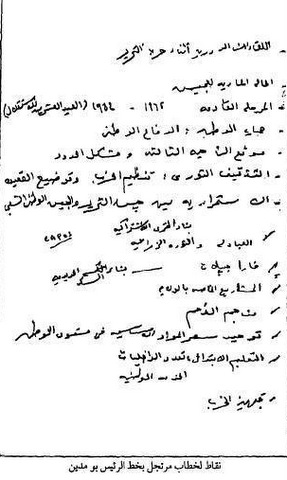 - اللقاءات الدورية أثناء حرب التحرير
- الحالة المادية للجيش
- المرحلة القادمة ١٩٦٢ - ١٩٨٤ (العيد العشرين للاستقلال)
- حماية الوطن: الدفاع الوطني
- موضع الناحية الثالثة ومشكل الحدود
- التثقيف الثوري: تنظيم الحزب وتوضيع
- الاستمرارية بين جيش التحرير والجيش الوطني الشعبي
بناء القرى الاشتراكية
العبادلة والثورة الزراعية
فارا جبيلات
بناء السكك الحديدية
المشاريع الخاصة بالولاية
مناجم الفحم
توحيد سعر المواد الأساسية في مستوى الوطن
التعليم الابتدائي، تعدد الداخليات
الخدمة الوطنية
تجهيز الحزب
نقاط لخطاب مرتجل بخط الرئيس بو مدين